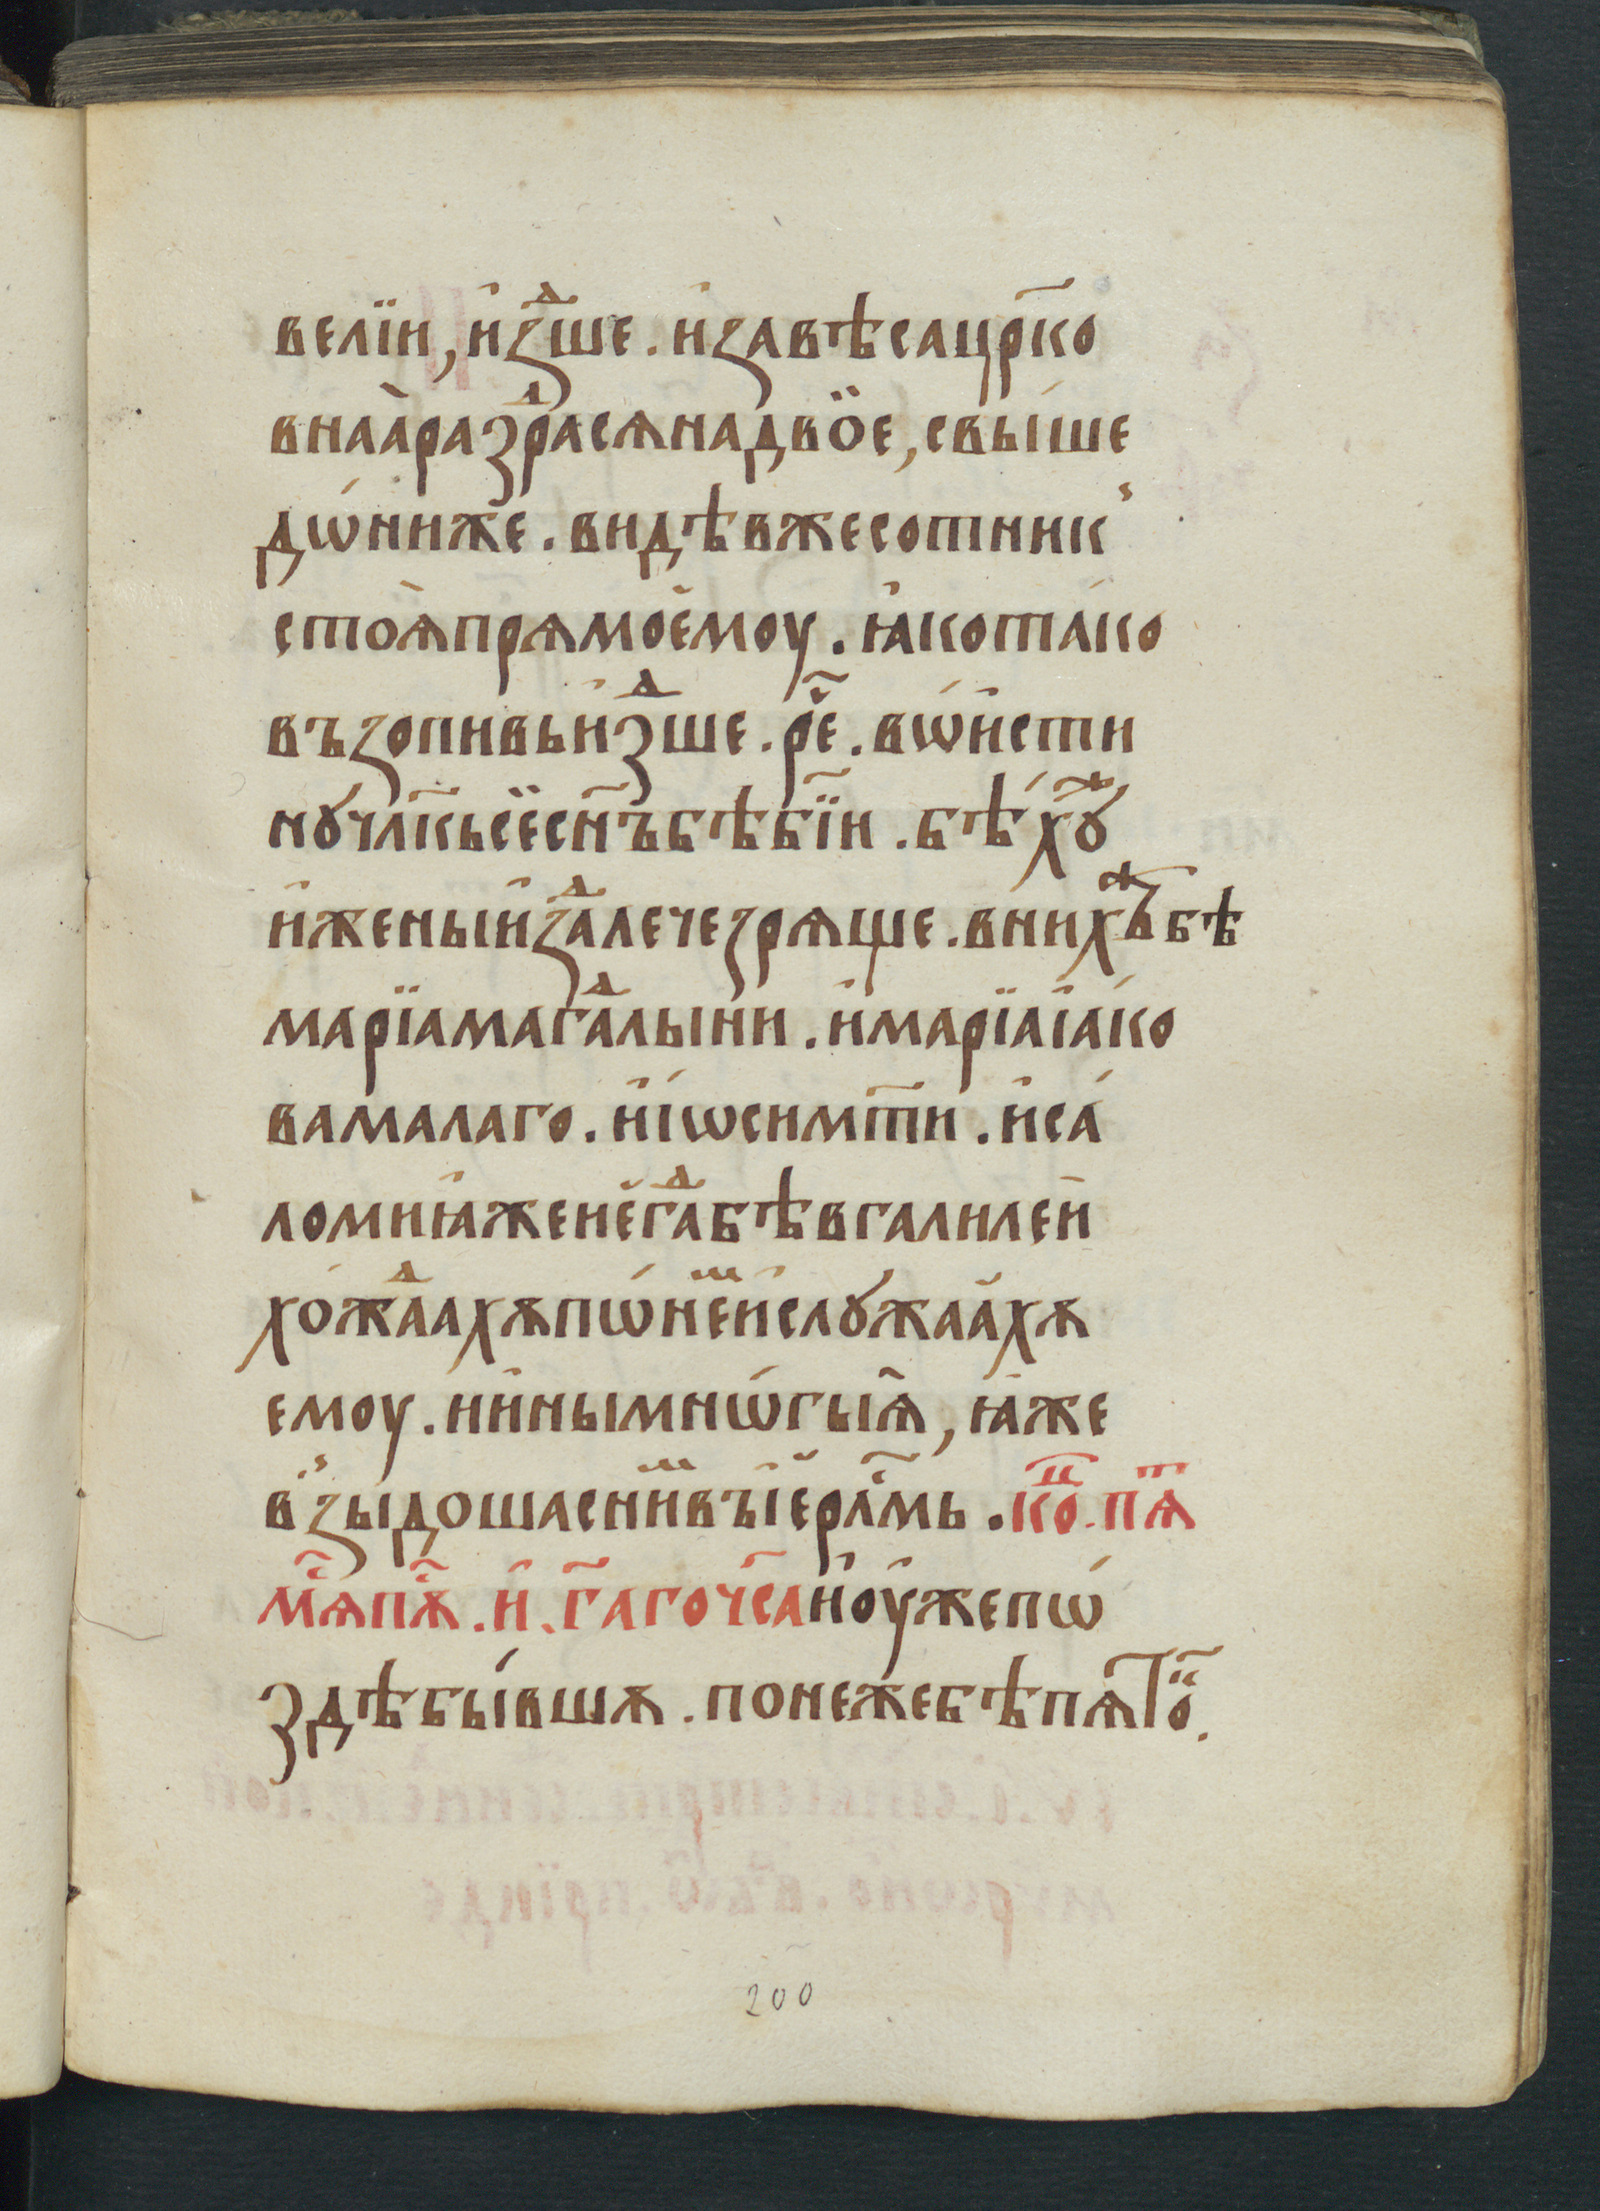 велїи, и҆зⷣше . и҆завѣсацр҃ко
внаѧ̀разⷣрасѧнадвӧе, свы́ше
дѡ́ниже . видѣвжесотник̾
стоѧ̀прѧмое҆моу . ꙗ҆котако
възопивьи҆зⷣше . рⷭ҇е . вѡ́и҆сти
нꙋ́чл҃кьсёсн҃ъбѣбж҃їи . бѣхꙋⷤ
и҆женыи҆зⷣалечезрѧще . внихъⷤбѣ
марїамагⷣалыни . и҆марїаіа҆ко
вамалаго . и҆і҆ѡсимт҃и . и҆са́
ломиꙗ҆жеие҆гⷣабѣвгалилеи҆
хожⷣаахѫпѡ́не́ⷨи҆слꙋжаа҆хѫ
емоу . ии҆нымнѡ́гыѧ҆, ꙗ҆же
в̾зыдошасниⷨвъі҆ерⷭ҇лмь . кⷪ҇ц . пѧⷮ
мⷭ҇ѧпⷭ҇ѫ . и҆ . г҃агочс҃аи҆оу҆жепѡ́
здѣбы́вшѫ . понежебѣпѧтӧк҃ .
200